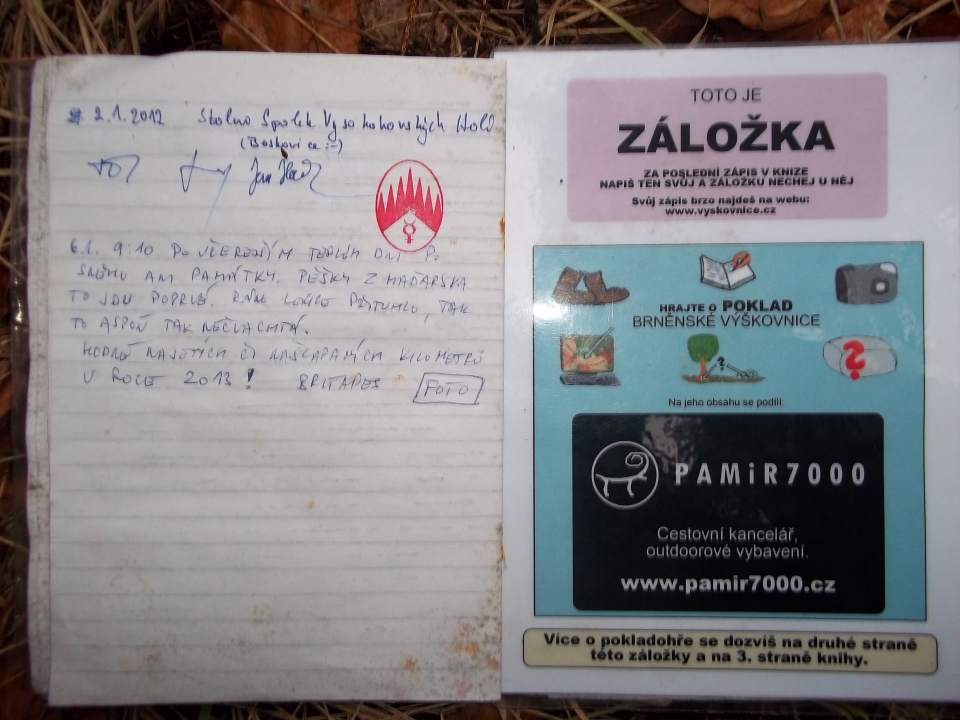 2.1.2012 Spolek
(Boskovice :-)
6.1. 9:10 PO VČEREJŠÍM TEPLÉM DNI PO
SNĚHU ANI PAMÁTKY. PĚŠKY Z MAĎARSKA
TO JDU POPRVÉ. RÁNO LEHCE PŘITUHLO, TAK
TO ASPOŇ TAK NEČVACHTÁ.
HODNĚ NAJETÝCH ČI NAŠLAPANÝCH KILOMETRŮ
V ROCE 2013! BRITAPES FOTO
TOTO JE
ZÁLOŽKA
ZA POSLEDNÍ ZÁPIS V KNIZE
NAPIŠ TEN SVŮJ A ZÁLOŽKU NECHEJ U NĚJ
Svůj zápis brzo najdeš na webu:
www.vyskovnice.cz
HRAJTE O POKLAD
BRNĚNSKÉ VÝŠKOVNICE
?
?
Na jeho obsahu se podílí:
PAMiR7000
Cestovní kancelář,
outdoorové vybavení.
www.pamir7000.cz
Více o pokladohře se dozvíš na druhé straně
této záložky a na 3. straně knihy.